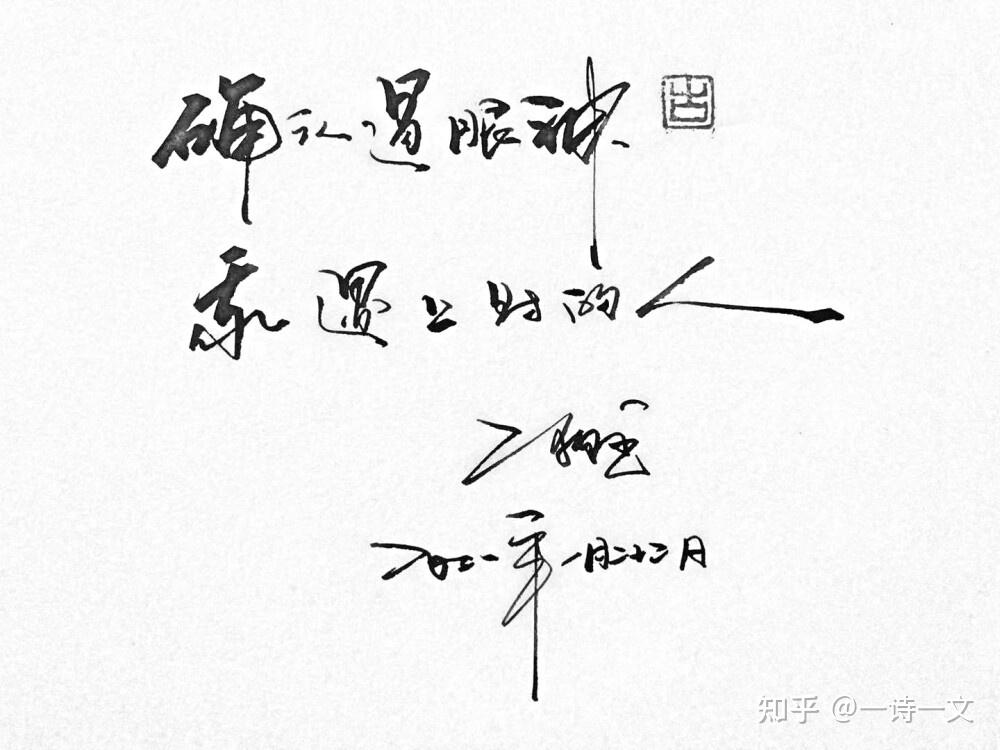 确认过眼神、
我遇上对的人
二〇二一年一月二十二日
知乎 @一诗一文